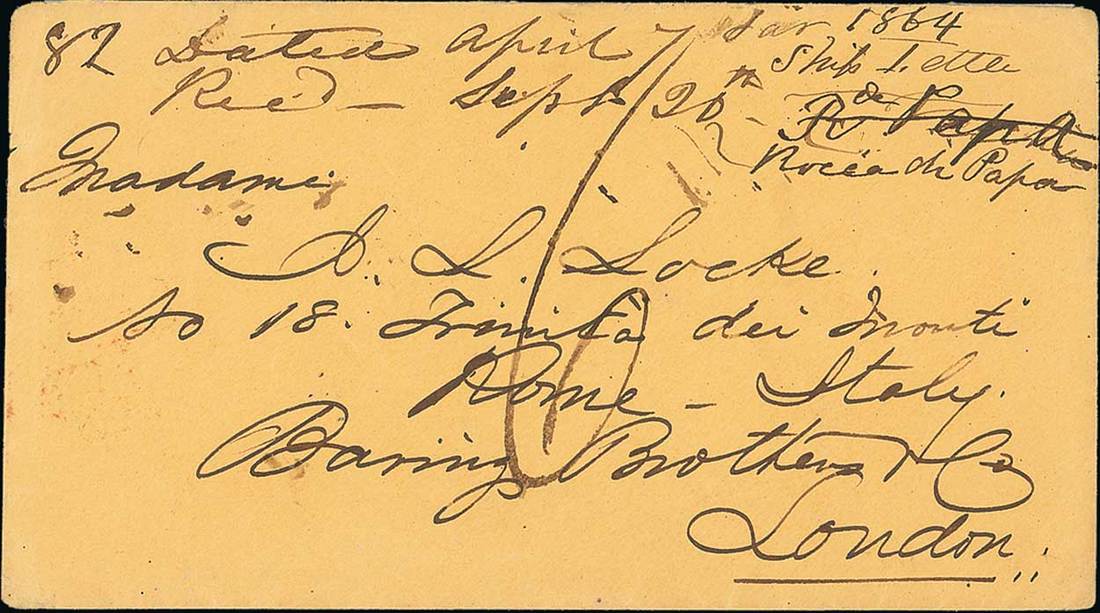 82 Dated April 7 1864
Ship Letter
Recd — Sept 20th — de Papa
Rocca di Papa
Madame
A. L. Locke.
No 18. Trinità dei Monti
Rome — Italy.
Baring Brothers & Co
London.
6